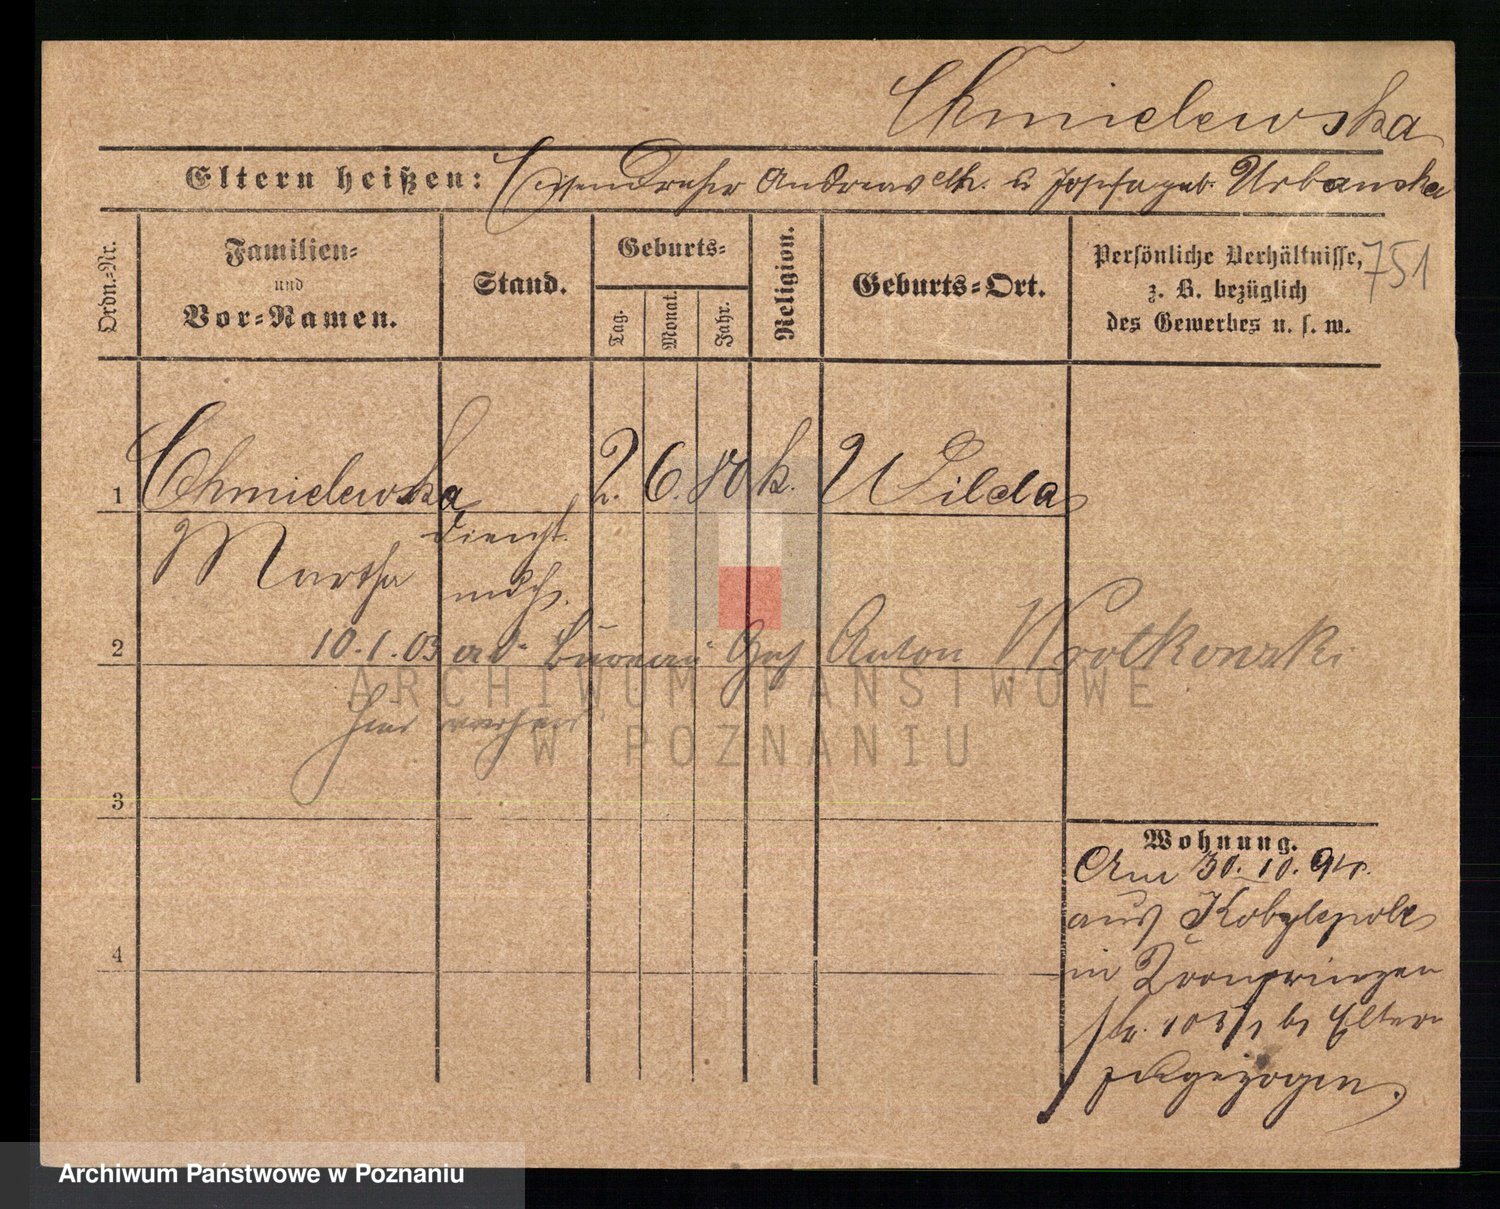 Chmielewska
Eltern heißen: Eisendreher Andreas Ch. u Josefa geb. Urbanska
Ordn.-Nr.
Familien-
und
Vor-Namen.
Stand.
Geburts-
Tag.
Monat.
Jahr.
Religion.
Geburts-Ort.
Persönliche Verhältnisse,
z. B. bezüglich
des Gewerbes u. s. w.
751
1 Chmielewska 2. 6. 80 k. Wilda
Martha Dienst
mdch.
2 10.1.03 Bureau Anton Wrotkowski
ARCHIWUM PAŃSTWOWE
W POZNANIU
3
4
Wohnung.
Am 30.10.94.
aus Kobylepole
in Kronprinzen
str. bei Eltern
zugezogen.
Archiwum Państwowe w Poznaniu